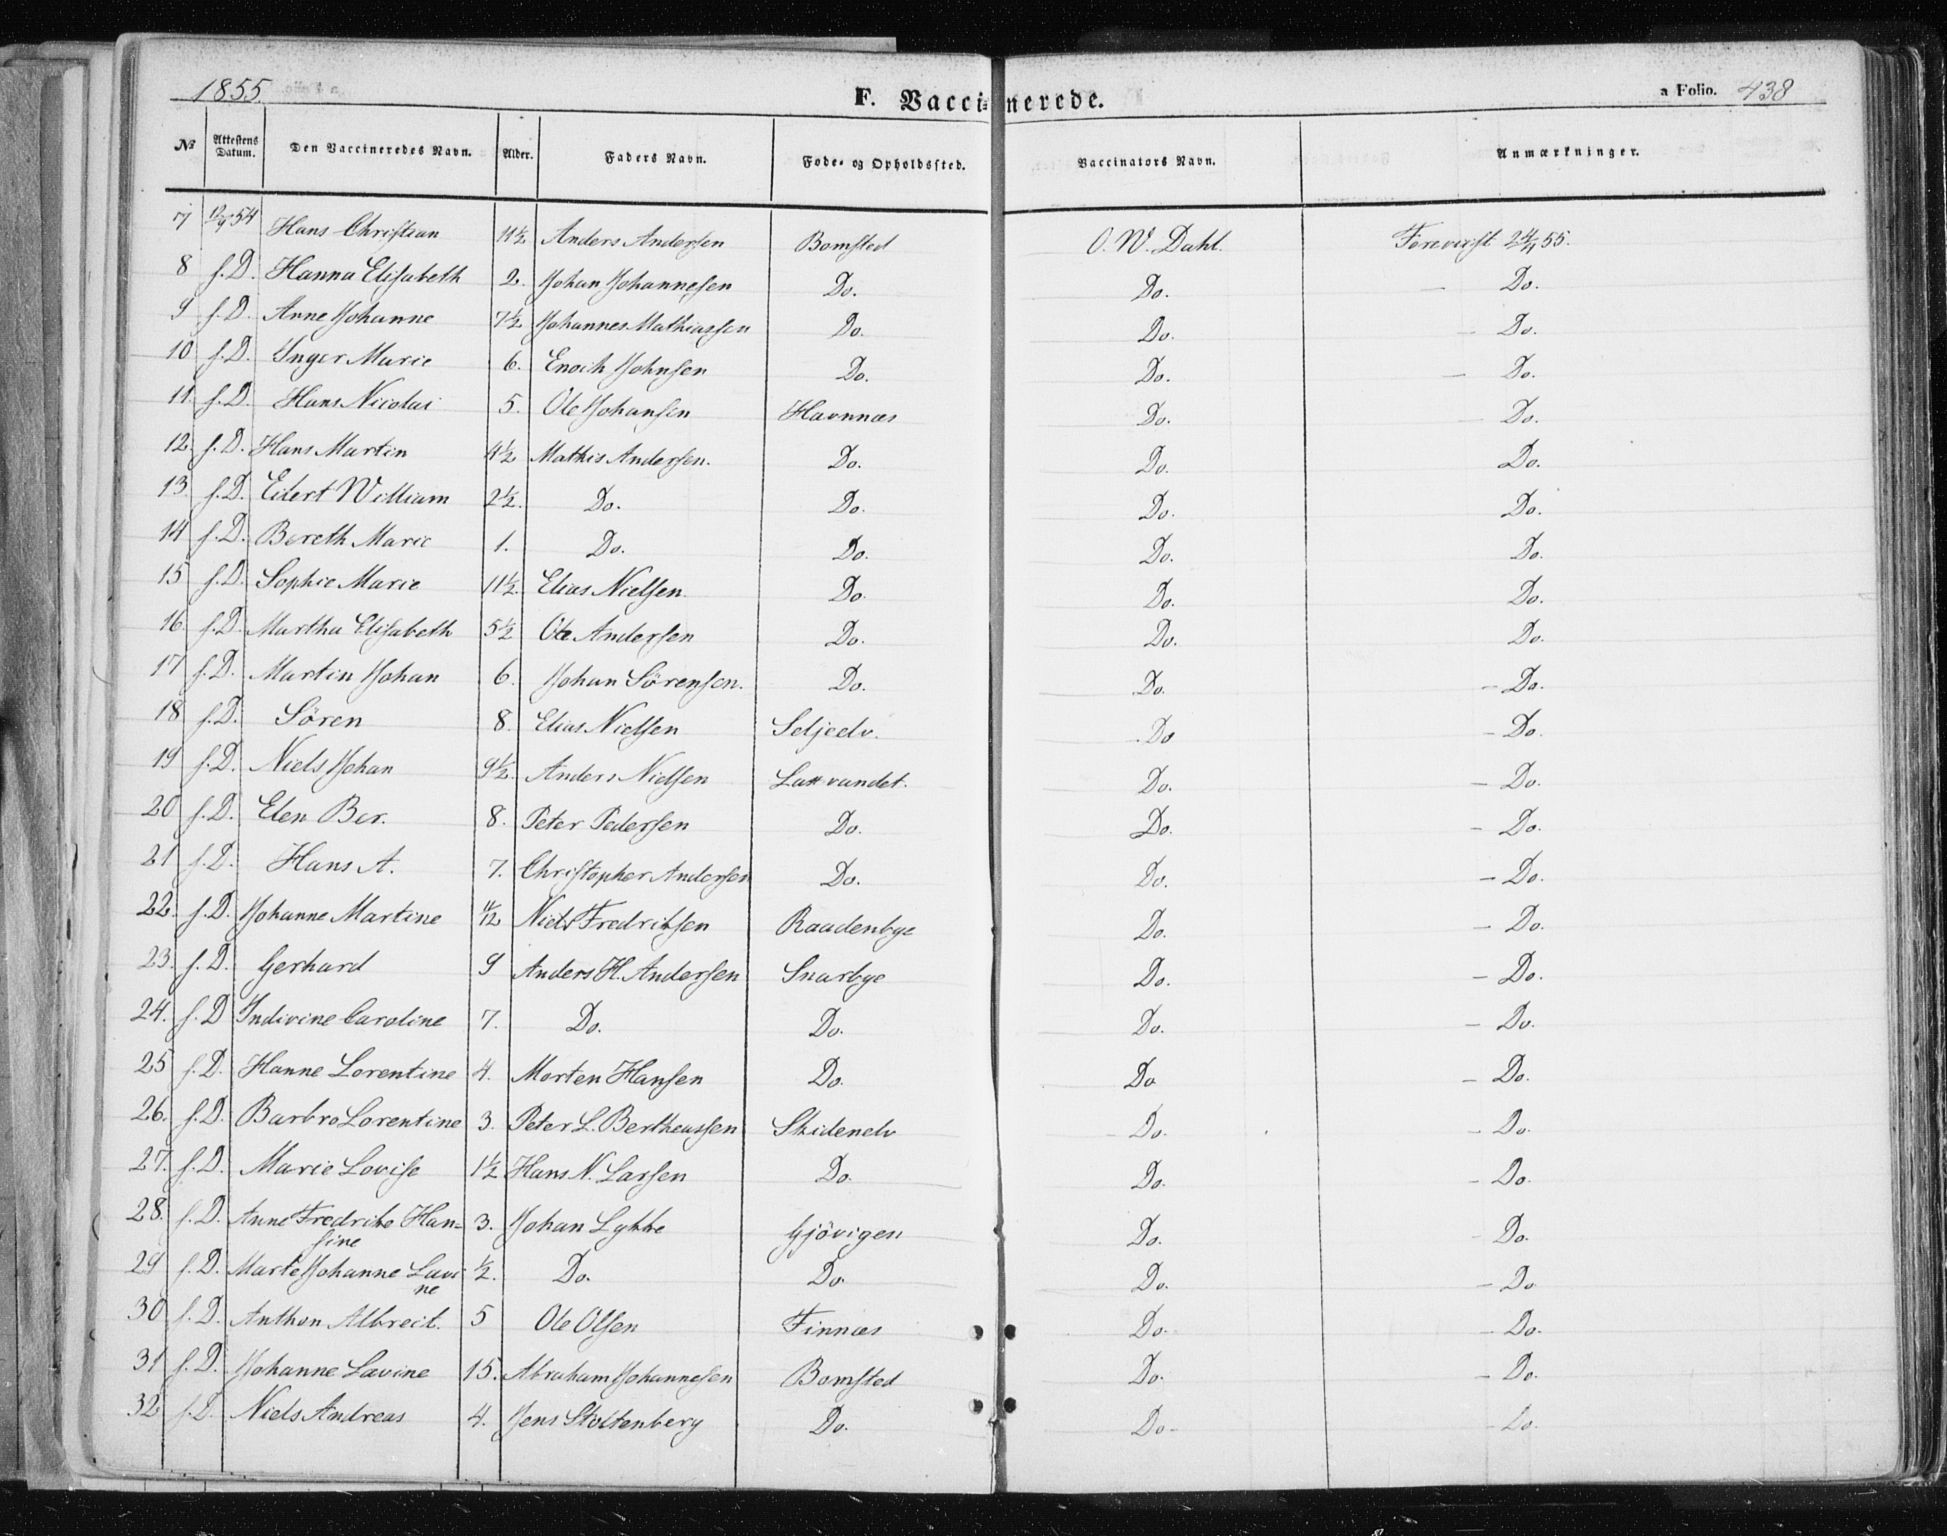 1855.
F. Vaccinerede.
a Folio. 438
No Attestens Datum. Den Vaccineredes Navn. Alder. Faders Navn. Føde- og Opholdssted. Vaccinators Navn. Anmærkninger.
7 12/9 54 Hans Christian 11½ Anders Andersen Bomsted O. W. Dahl. Foreviist 24/4 55.
8 s. D. Hanna Elisabeth 2. Johan Johannesen Do. Do. Do.
9 s. D. Anne Johanne 7½ Johannes Mathiassen Do. Do. Do.
10 s. D. Inger Marie 6. Enoch Johnsen Do. Do. Do.
11 s. D. Hans Nicolai 5. Ole Johansen Havnnæs Do. Do.
12 s. D. Hans Martin 4½ Mathis Andersen. Do. Do. Do.
13. s. D. Eilert William 2½. Do. Do. Do. Do.
14 s. D. Bereth Marie 1. Do. Do. Do. Do.
15 s. D. Sophie Marie 11½. Elias Nielsen Do. Do. Do.
16. s. D. Martha Elisabeth 5½ Ole Andersen Do. Do. Do.
17 s. D. Martin Johan 6. Johan Sörensen. Do. Do. Do.
18 s. D. Sören 8. Elias Nielsen Seljeelv. Do Do.
19 s. D. Niels Johan 9½. Anders Nielsen Laxvandet. Do. Do.
20 s. D. Elen Ber. 8. Peter Pedersen Do. Do. Do.
21 s. D. Hans A. 7. Christopher Andersen Do. Do. Do.
22. s. D. Johanne Martine 11/12 Niels Fredriksen Raadenbye Do. Do.
23. s. D. Gerhard 9 Anders H. Andersen Snarbye Do. Do.
24. s. D Indivine Caroline 7. Do. Do. Do. Do.
25 s. D. Hanne Lorentine 4. Morten Hansen Do. Do Do.
26. s. D. Barbro Lorentine 3. Peter L. Bertheussen Skidenelv Do. Do.
27. s. D. Marie Lovise 1½ Hans N. Larsen Do. Do. Do.
28. s. D. Anne Fredrike Han-
sine 3. Johan Lykke Gjövigen Do. Do.
29 s. D. Marte Johanne Lavi
ne ½. Do. Do. Do. Do
30 s. D. Anthon Albreit. 5 Ole Olsen Finnæs Do. Do.
31 s. D. Johanne Lavine 15. Abraham Johannesen Bomsted Do. Do.
32 s. D. Niels Andreas 4. Jens Stoltenberg Do. Do. Do.